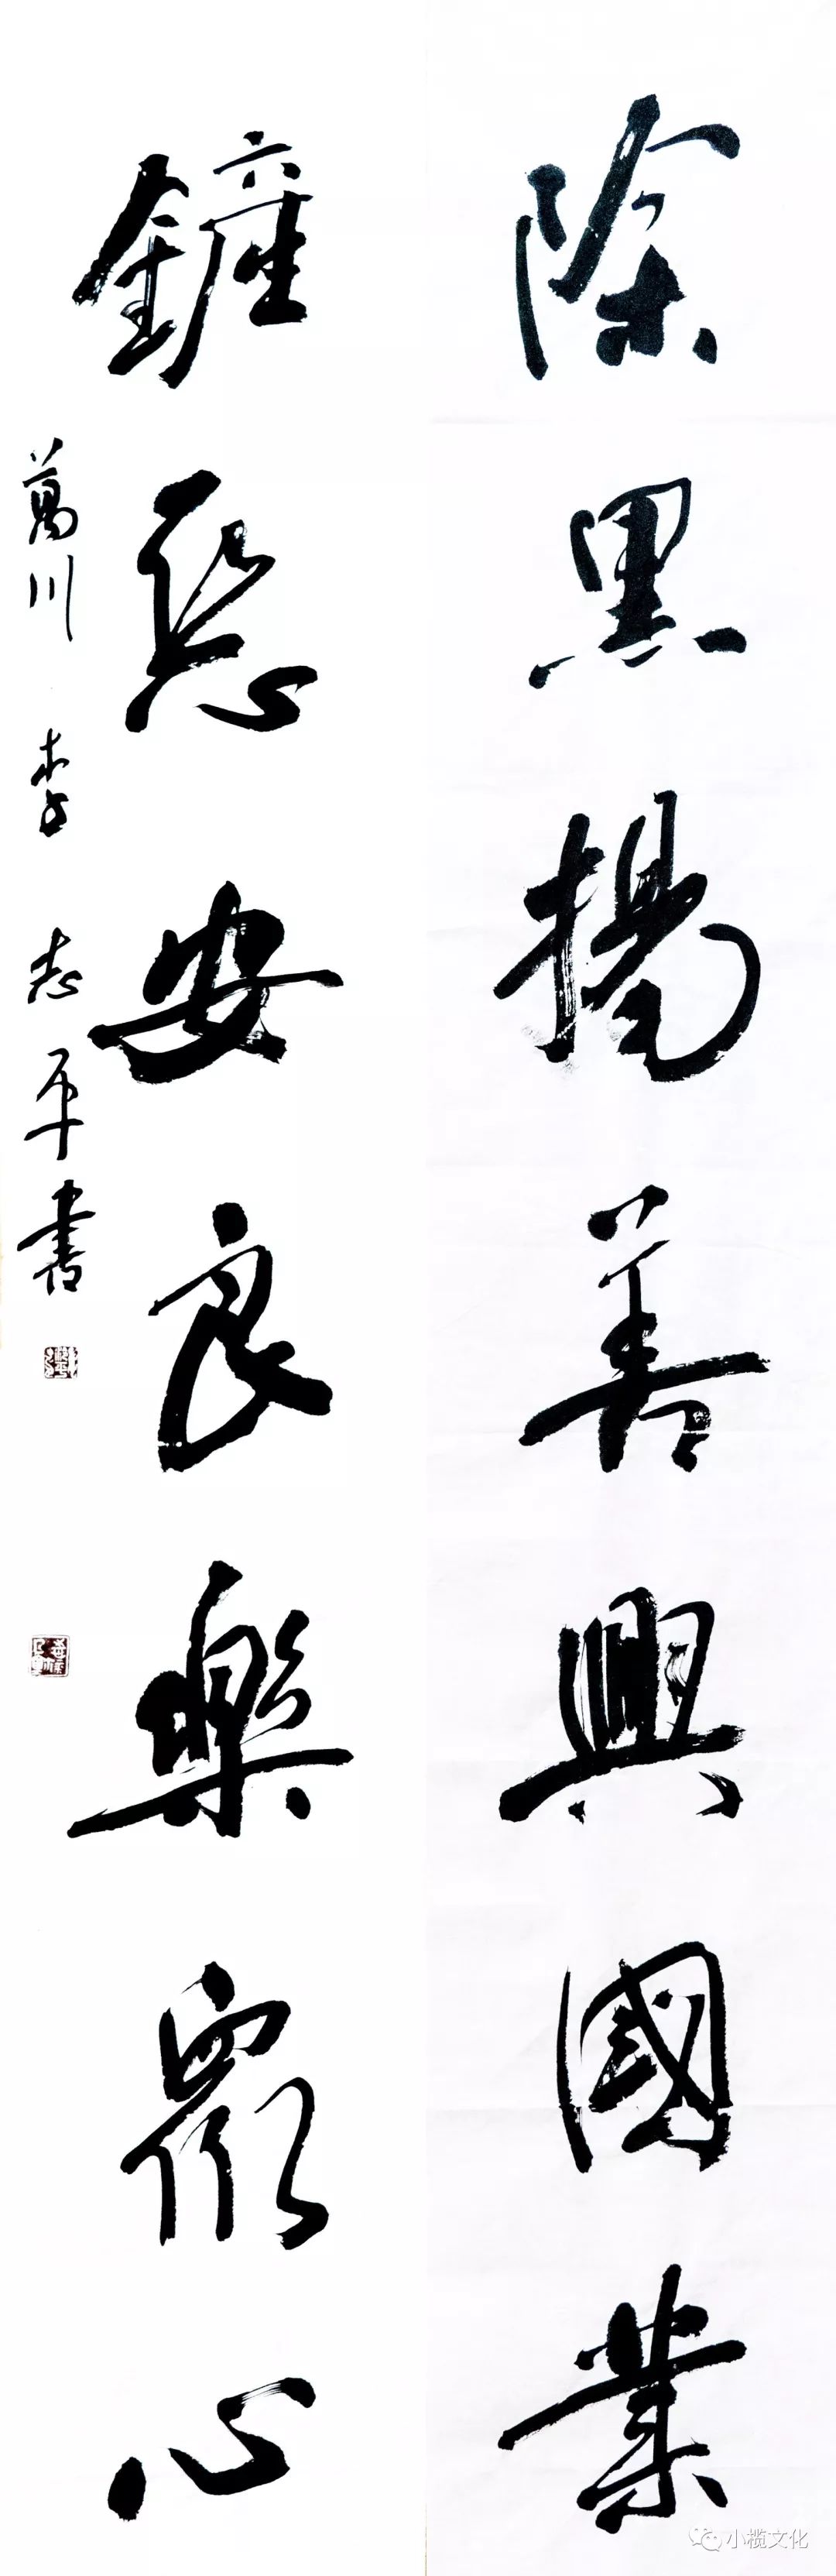 除黑揚善興國業
鏟惡安良樂眾心
萬川 李志平書
小榄文化